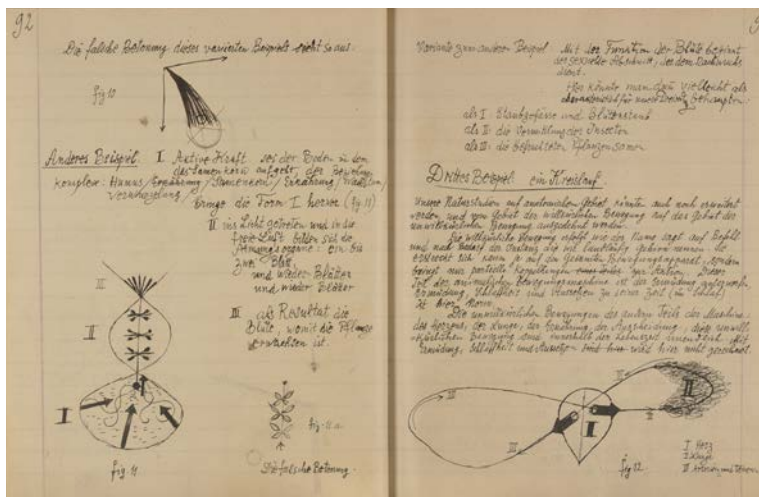 92
Die falsche Betonung dieses variierten Beispiels sieht so aus.
fig 10
Anderes Beispiel. I Aktive Kraft sei der Boden in dem
das Samenkorn aufgeht, der Beziehungs
komplex: Humus / Ernährung / Samenkorn / Ernährung /
Verwurzelung / bringe die Form I hervor (fig. 11)
II ins Licht getreten und in die
freie Luft bilden sich die
Atmungsorgane: ein bis
zwei Blätt.
und wieder Blätter
und wieder Blätter
III als Resultat die
Blüte, womit die Pflanze
erwachsen ist.
III
II
I
fig. 11
fig. 11 a
Die falsche Betonung.
Variante zum anderen Beispiel Mit der Funktion der Blüte beginnt
der sexuelle Abschnitt, der dem Nachwuchs
dient.
Hier könnte man dazu vielleicht als
charakteristisch für unsere Dreiheit behaupten:
als I: Staubgefässe und Blütenstaub
als II: die Vermittlung der Insecten
als III: die befruchteten Pflanzensamen
Drittes Beispiel ein Kreislauf.
Unsere Naturstudien auf anatomischem Gebiet könnten auch noch erweitert
werden und vom Gebiet der willkürlichen Bewegung auf das Gebiet der
unwillkürlichen Bewegung ausgedehnt werden.
Die willkürliche Bewegung erfolgt wie der Name sagt auf Befehl
und nach Bedarf der Instanz die wir Gehirn nennen. Sie
erstreckt sich kaum je auf den gesamten Bewegungsapparat, sondern
bringt nur partielle Regelungen zur Aktion. Dieser
Teil der animalischen Bewegungsmaschine ist der Ermüdung ausgesetzt.
Ermüdung, Schlaffheit und Ausruhen zu seiner Zeit (im Schlaf)
ist hier Norm.
Die unwillkürlichen Bewegungen des andern Teils der Maschine
des Herzens, der Lunge, der der Ausscheidung, diese unwill-
kürlichen Bewegung sind innerhalb der Lebenszeit Mit
Ermüdung, Schlaffheit und Ausruhen wird hier nicht gerechnet.
III
III
I
II
2
fig 12
I Herz
2 Lunge
III